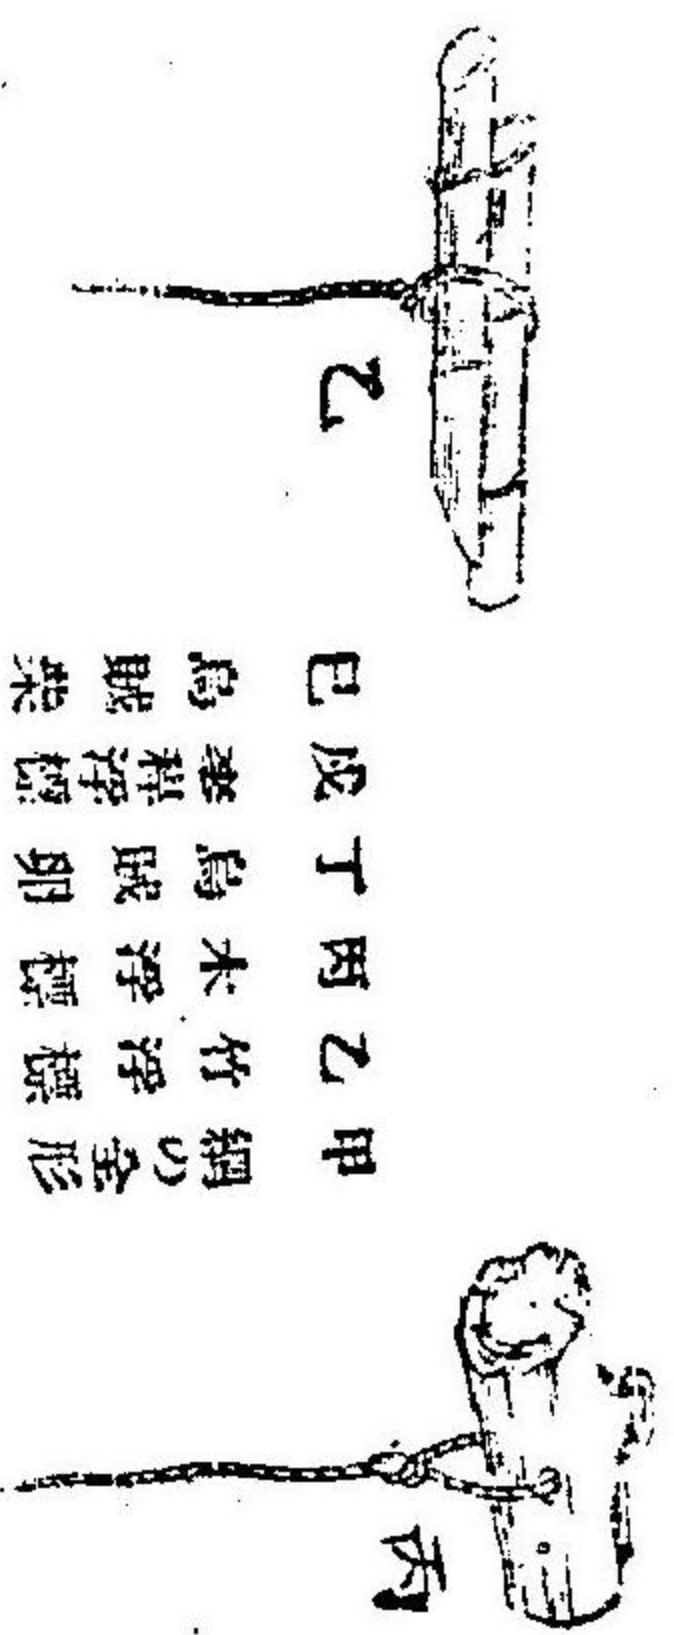 丙
甲 網の全形
乙 竹浮標
丙 木浮標
丁 烏賊卵
戊 浮標
巳 烏賊柴
乙